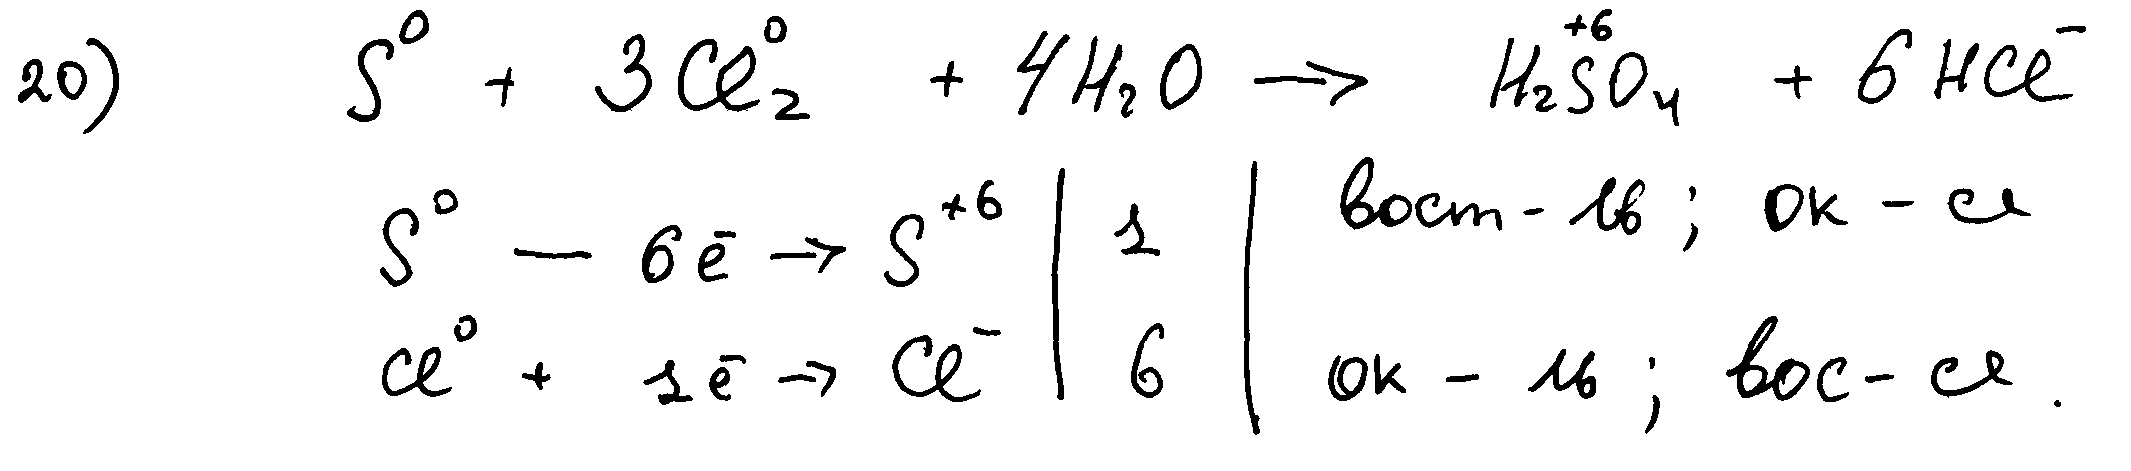 20) S⁰ + 3Cl₂⁰ + 4H₂O → H₂S⁺⁶O₄ + 6HCl⁻
S⁰ — 6ē → S⁺⁶ | 1 | вост-ль; ок-ся
Cl⁰ + 1ē → Cl⁻ | 6 | ок-ль; вос-ся.